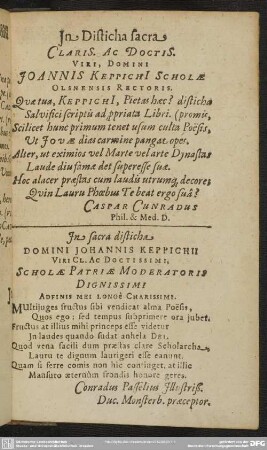 In Disticha sacra
CLARIS. AC DOCTIS.
VIRI, DOMINI
JOANNIS KEPPICHI SCHOLÆ
OLSNENSIS RECTORIS.
Quæ tua, KEPPICHI, Pietas hæc? disticha
Salvifici scriptù ad ꝓpria Libri. (promis,
Scilicet hunc primum tenet usum culta Poësis,
Ut JOVÆ dias carmine pangat opes.
Alter, ut eximios vel Marte vel arte Dynastas
Laude diu famæ det superesse suæ.
Hoc alacer præstas cum laudis utrumq, decore;
Quin Lauru Phœbus Te beat ergo suâ?
CASPAR CUNRADUS
Phil. & Med. D.
In sacra disticha
DOMINI JOHANNIS KEPPICHII
VIRI CL. AC DOCTISSIMI,
SCHOLÆ PATRIÆ MODERATORIS
DIGNISSIMI
ADFINIS MEI LONGÈ CHARISSIMI.
Multijuges fructus sibi vendicat alma Poësis,
Quos ego; sed tempus supprimere ora jubet.
Fructus at illius mihi princeps esse videtur
In laudes quando sudat anhela DEI.
Quod vena facili dum præstas clare Scholarcha,
Lauru te dignum laurigeri esse aunt.
Quam si ferre comis non hic contingat, at illic
Mansuro æternùm frondis honore geres.
Conradus Passelius Illustriss.
Duc. Monsterb. præceptor.